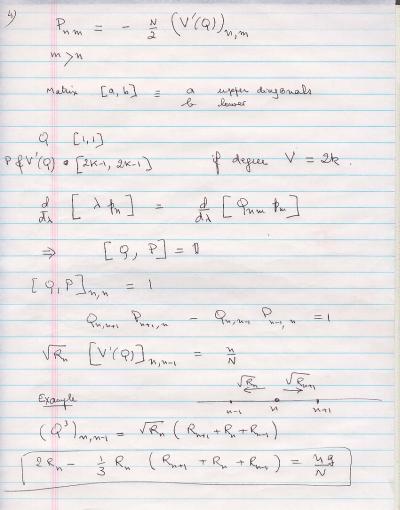 4)
P_{nm} = - \frac{N}{2} (V'(Q))_{n,m}
m > n
Matrix [a, b] ≡ a upper diagonals
b lower
Q [1,1]
P & V'(Q) • [2k-1, 2k-1] if degree V = 2k.
\frac{d}{dλ} [λ p_n] = \frac{d}{dλ} [Q_{nm} p_m]
⇒ [Q, P] = 1
[Q, P]_{n,n} = 1
Q_{n,n+1} P_{n+1,n} - Q_{n,n-1} P_{n-1,n} = 1
\sqrt{R_n} [V'(Q)]_{n,n-1} = \frac{n}{N}
\sqrt{R_n} \sqrt{R_{n+1}}
Example n-1 n n+1
(Q^3)_{n,n-1} = \sqrt{R_n} (R_{n+1} + R_n + R_{n-1})
2R_n - \frac{1}{3} R_n (R_{n+1} + R_n + R_{n-1}) = \frac{ng}{N}